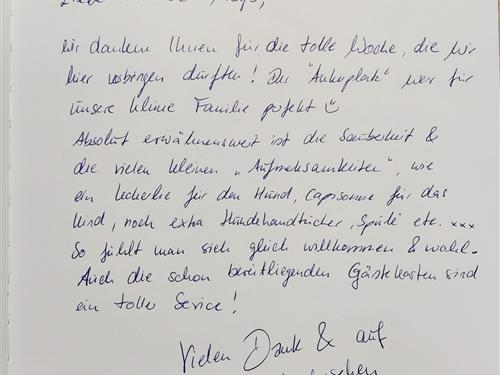 wir danken Ihnen für die tolle Woche, die wir
hier verbringen durften! Der "Ankerplatz" war für
unsere kleine Familie perfekt
Absolut erwähnenswert ist die Sauberkeit &
die vielen kleinen „Aufmerksamkeiten", wie
ein Leckerlie für den Hund, Capisonne für das
Kind, noch extra Hundehandtücher, Spüli etc. xxx
So fühlt man sich gleich willkommen & wohl.
Auch die schon bereitliegenden Gästekarten sind
ein toller Service!
Vielen Dank & auf